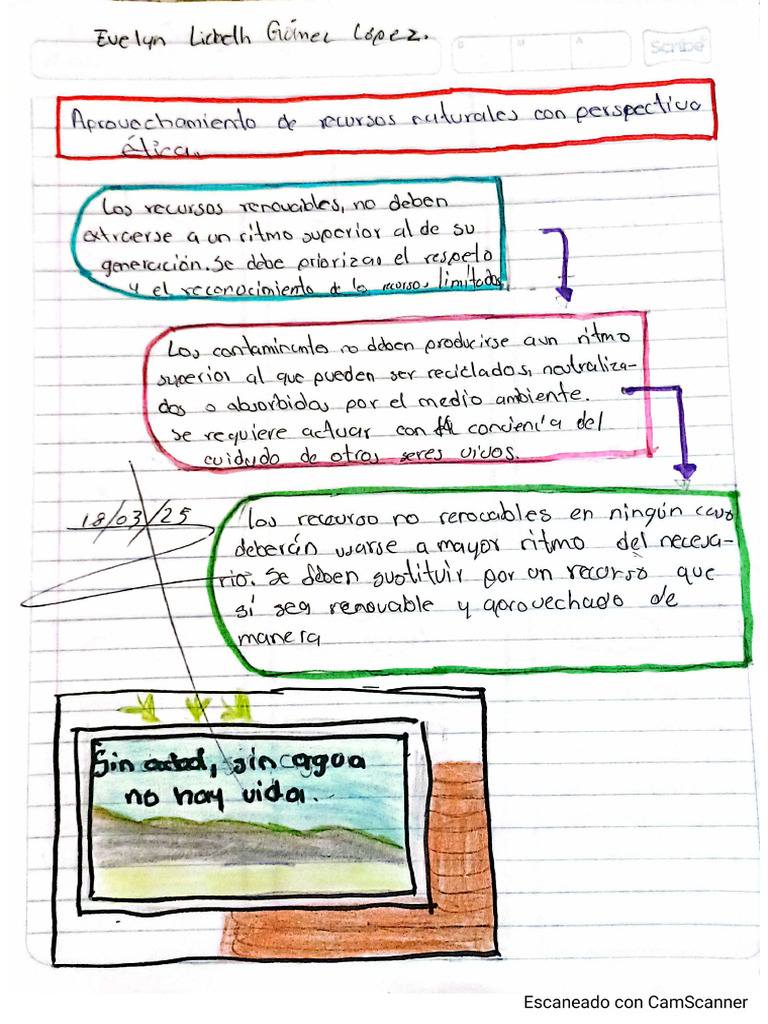 Evelyn Lisbeth Gómez López.
D M A
Scribe
Aprovechamiento de recursos naturales con perspectiva
ética.
Los recursos renovables, no deben
extraerse a un ritmo superior al de su
generación. Se debe priorizar el respeto
y el reconocimiento de lo recursos limitados
Los contaminante no deben producirse a un ritmo
superior al que pueden ser reciclados, neutraliza-
dos o absorbidos por el medio ambiente.
se requiere actuar con conciencia del
cuidado de otros seres vivos.
18/03/25
Los recurso no renocables en ningún caso
deberán usarse a mayor ritmo del necesa-
rio. Se deben sustituir por un recurso que
sí sea renovable y aprovechado de
manera
Sin , sin agoa
no hay vida.
Escaneado con CamScanner